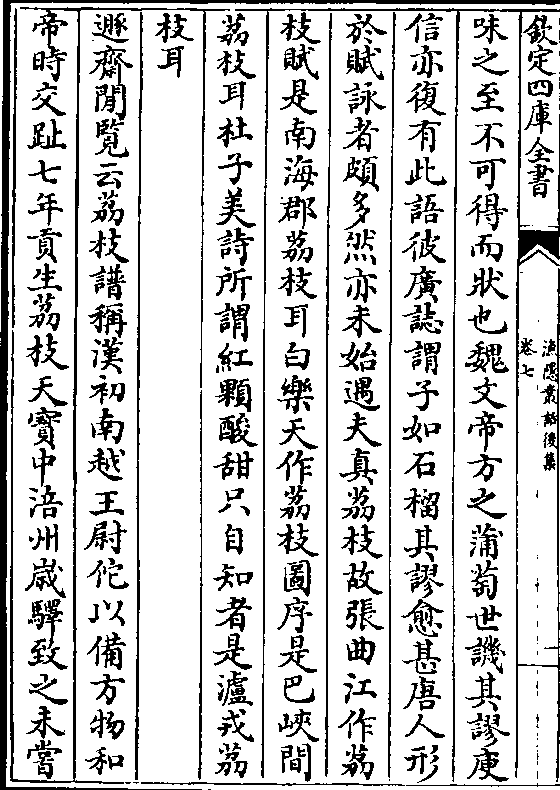 欽定四庫全書
漁隱叢話後集
卷七
味之至不可得而狀也魏文帝方之蒲萄世譏其謬庾
信亦復有此語彼廣誌謂子如石榴其謬愈甚唐人形
於賦詠者頗多然亦未始遇夫真荔枝故張曲江作荔
枝賦是南海郡荔枝耳白樂天作荔枝圖序是巴峽間
荔枝耳杜子美詩所謂紅顆酸甜只自知者是瀘戎荔
枝耳
遯齋閒覽云荔枝譜稱漢初南越王尉佗以備方物和
帝時交趾七年貢生荔枝天寶中涪州嵗驛致之未嘗